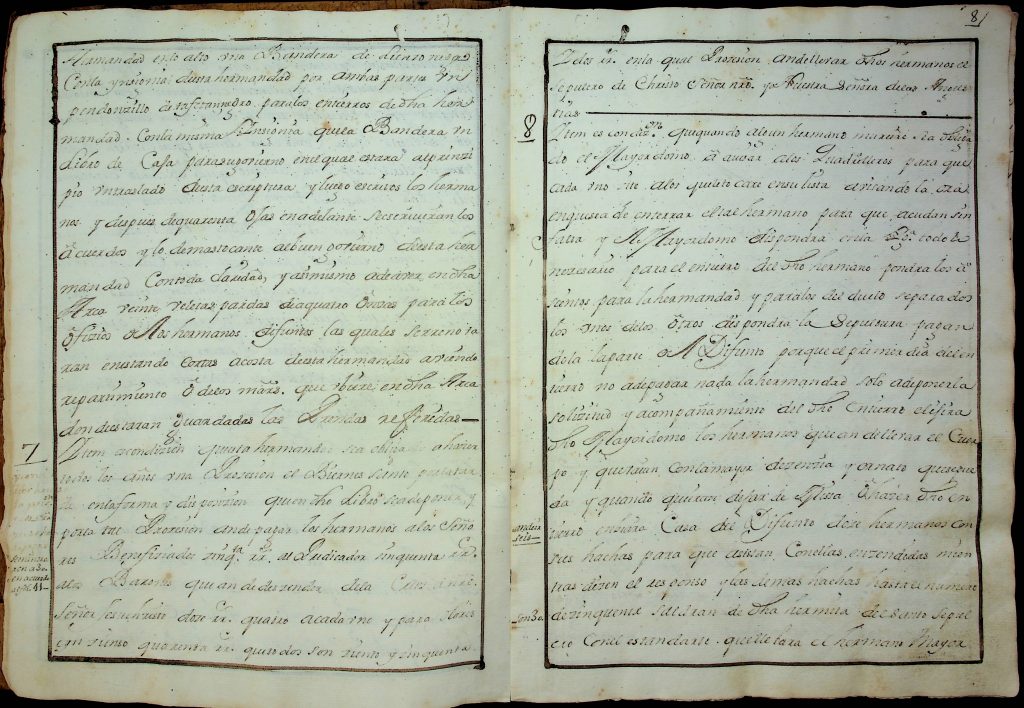 Hermandad en lo alto vna Bandera de lienzo negra
Con la ynsignia desta hermandad por ambas partes vn
pendonzillo de tafetan negro para los entierros de dha her
mandad. Con la misma Ynsignia que la Bandera vn
libro de Caja para su govierno en el qual estara al prinzi
pio vn traslado desta escriptura y luego escritos los herma
nos y despues de quarenta ojas en adelante se escriviran los
acuerdos y lo demas tocante al buen govierno desta her
mandad Con toda claridad, y asimismo a de aver en dha
Arca veinte veletas pardas de a quatro onzas para los
ofizios de los hermanos difuntos las quales se renovaran
en estando cortas acosta desta hermandad aviendo
repartimiento o de los mars. que vbiere en dha Arca
donde estaran guardadas las Prendas referidas
7
Yten es condizion questa hermandad sea obligada a hazer
todos los años vna Prosesion el Biernes Santo por la tar
de en la forma y dispusizion que en dho libro se a de poner y
por la tal Prosesion an de pagar los hermanos a los Seño
res Benefiziados zinqta. rr. al Predicador sinquenta rr.
a los Barones que an de desender de la Cruz a nro.
Señor Jesuchristo doze rr. quatro a cada vno y para
zien quarenta rr. que todos son ziento y zinquenta
8
y dos rr. en la qual Prosesion an de llevar dhos hermanos el
sepulcro de Christo Señor nro. y a Nuestra Señora de las Angus
tias
8
Yten es condizon. que quando algun hermano muriere sea obliga
do el Mayordomo a avisar a los Quadrilleros para que
cada vno site a los que le tocare en su lista avisando la ora
en que se a de enterrar el tal hermano para que acudan sin
falta y el Mayordomo dispondra en la todo lo
nezesario para el entierro del dho hermano pondra los a
sientos para la hermandad y para los del duelo separados
los vnos de los otros dispondra la sepultura pagan
dola la parte del Difunto porque el primer dia del en
tierro no a de pagar nada la hermandad solo a de poner la
solizitud y acompañamiento del dho entierro elejira
dho Mayordomo los hermanos que an de llevar el Cuer
po y que vaian con la mayor desenzia y ornato que se pue
da y quando quieran dejar de Misa o hazer dho en
tierro enviara Casa del Difunto doze hermanos con
tres hachas para que asistan Con ellas enzendidas mien
tras dizen el responso y las demas hachas hasta el numero
de zinquenta saldran de dha hermita del santo sepul
cro Con el estandarte que llebara el hermano Mayor